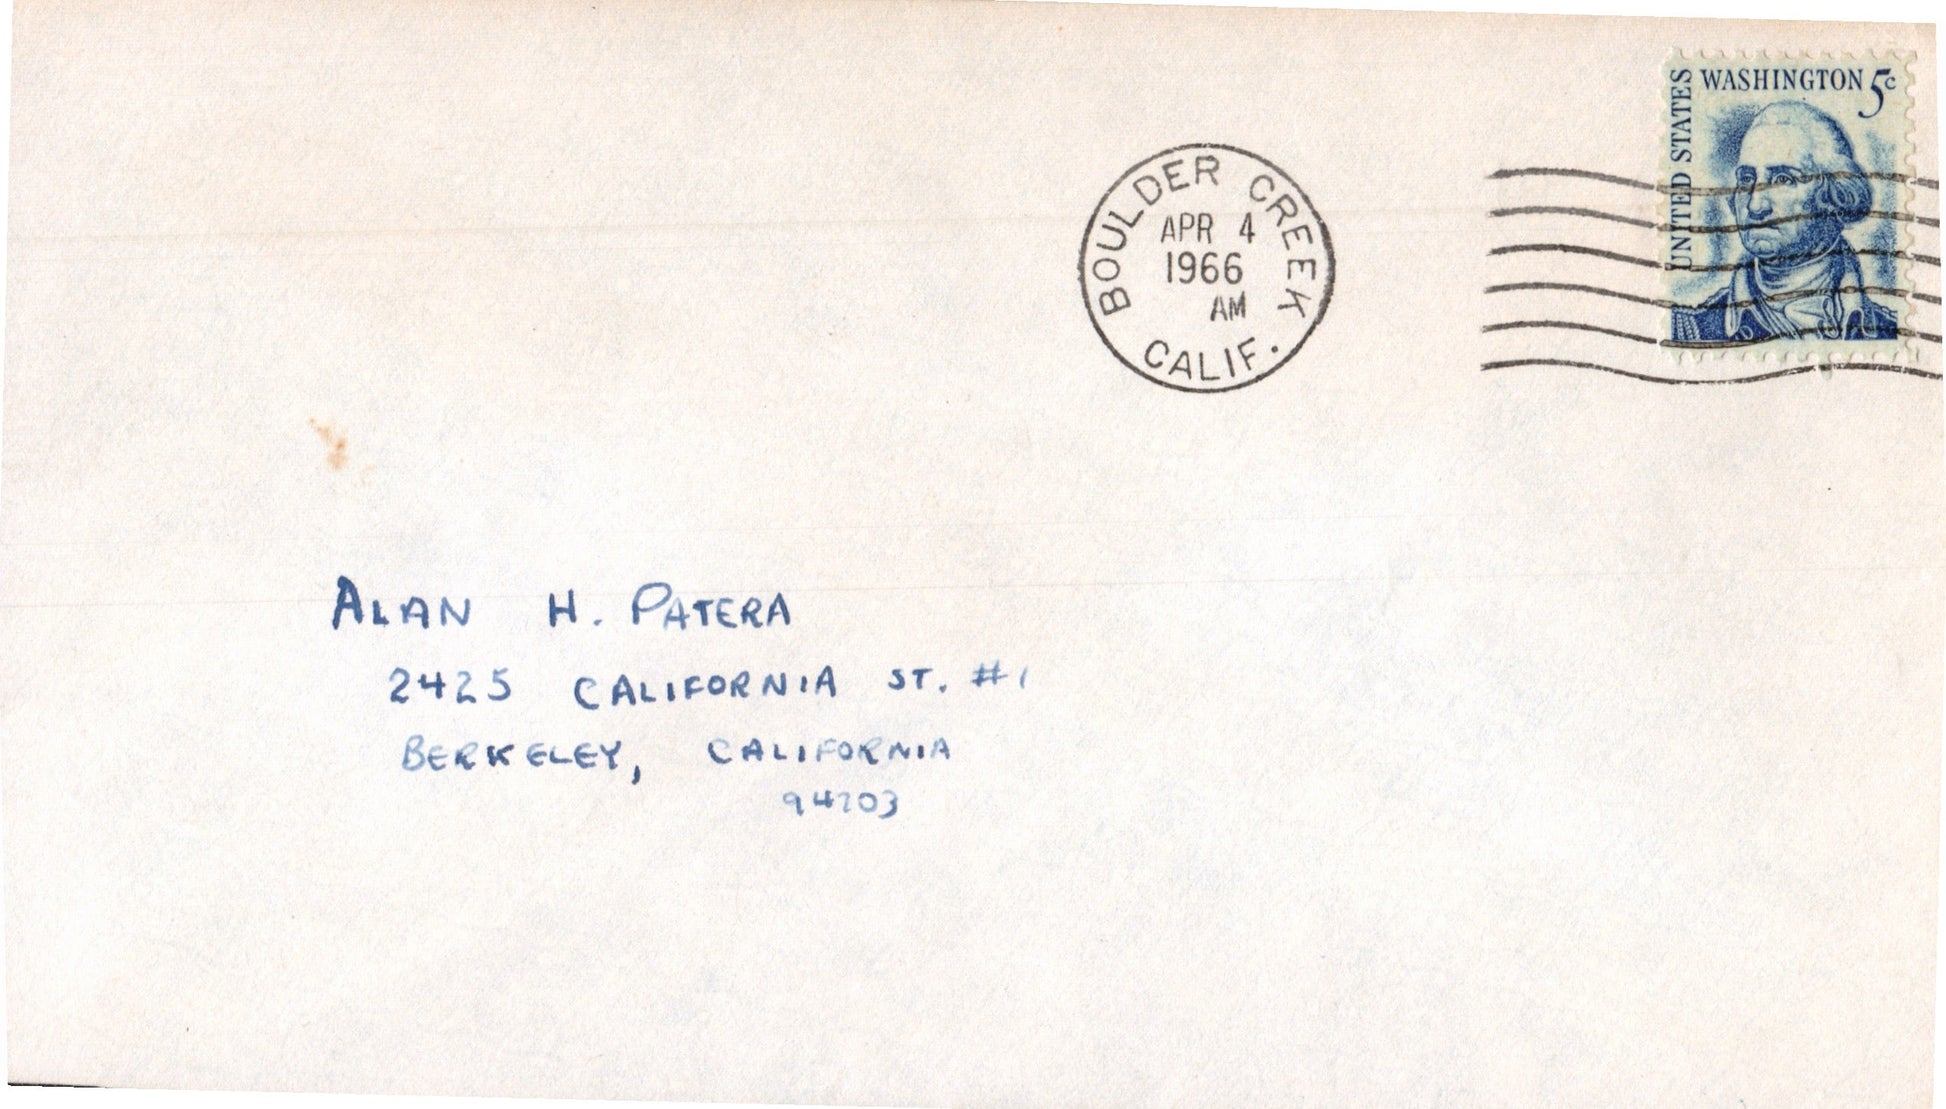 WASHINGTON 5c
UNITED STATES
BOULDER CREEK
APR 4
1966
AM
CALIF.
ALAN H. PATERA
2425 CALIFORNIA ST. #1
BERKELEY, CALIFORNIA
94703